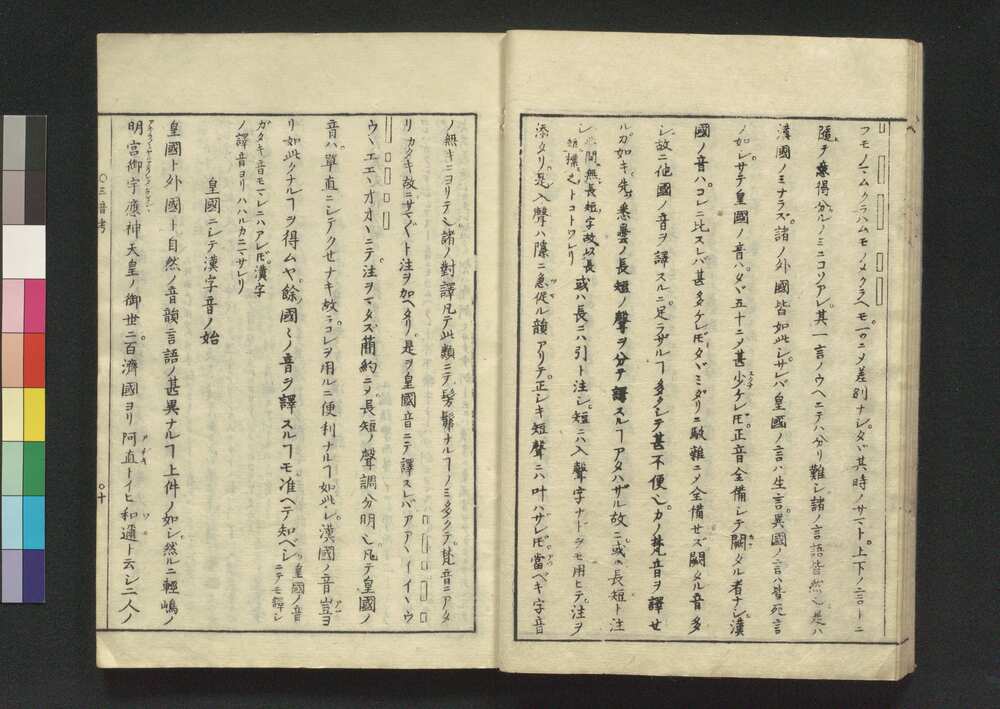 フモノマムクラハムモノメクラヘモ一ツニメ差別ナシ。タヾ其時ノサマト。上下ノ言トニ
隨テ意得分ルノミニコソアレ。其一言ノウヘニテハ分リ難シ諸ノ言語皆然也是ハ
漢國ノミナラズ。諸ノ外國皆如此シ。サレバ皇國ノ言ハ生言。異國ノ言ハ皆死言
ノ如シ。サテ皇國ノ音ハ。タヾ五十ニメ甚少ケレ𪜈。正音全備シテ闕タル者ナシ。漢
國ノ音ハ。コレニ比スレバ甚多ケレ𪜈。タヾミダリニ駁雜ニメ全備セズ闕タル音多
シ。故ニ他國ノ音ヲ譯スルニ足ラザルヿ多クシテ甚不便也。カノ梵音ヲ譯セ
ルガ如キ。先悉曇ノ長短ノ聲ヲ分テ譯スルヿアタハザル故ニ。或ハ長短ト注
シ。此間無長短字故以長短標之トコトワレリ 或ハ長ニハ引ト注シ。短ニハ入聲字ナドヲモ用ヒテ。注ヲ
添タリ。是入聲ハ隱ニ急促ル韻アリテ。正シキ短聲ニハ叶ハザレ𪜈。當ベキ字音
ノ無キニヨリテ也。諸ノ對譯凡テ此類ニテ髣髴ナルヿノミ多クテ。梵音ニアタ
リカタキ故ニ。サマ〴〵ト注ヲ加ヘタリ。是ヲ皇國音ニテ譯スレバ。アアヽイイヽウ
ウヽエエヽオオヽニテ。注ヲマタズ。簡約ニメ。長短ノ聲調分明也。凡テ皇國ノ
音ハ。單直ニシテクセナキ故ニ。コレヲ用ルニ便利ナルヿ如此シ。漢國ノ音豈ヨ
リ如此クナルヿヲ得ムヤ。餘國々ノ音ヲ譯スルヿモ准ヘテ知ベシ 皇國ノ音ニテモ譯シ
ガタキ音モマレニハアレ𪜈。漢字
ノ譯音ヨリハハルカニマサレリ
皇國ニシテ漢字音ノ始
皇國ト外國ト自然ノ音韻言語ノ甚異ナルヿ上件ノ如シ。然ルニ輕嶋ノ
明宮御宇應神天皇ノ御世ニ。百濟國ヨリ阿直トイヒ和邇ト云シ二人ノ
○三音考
○十